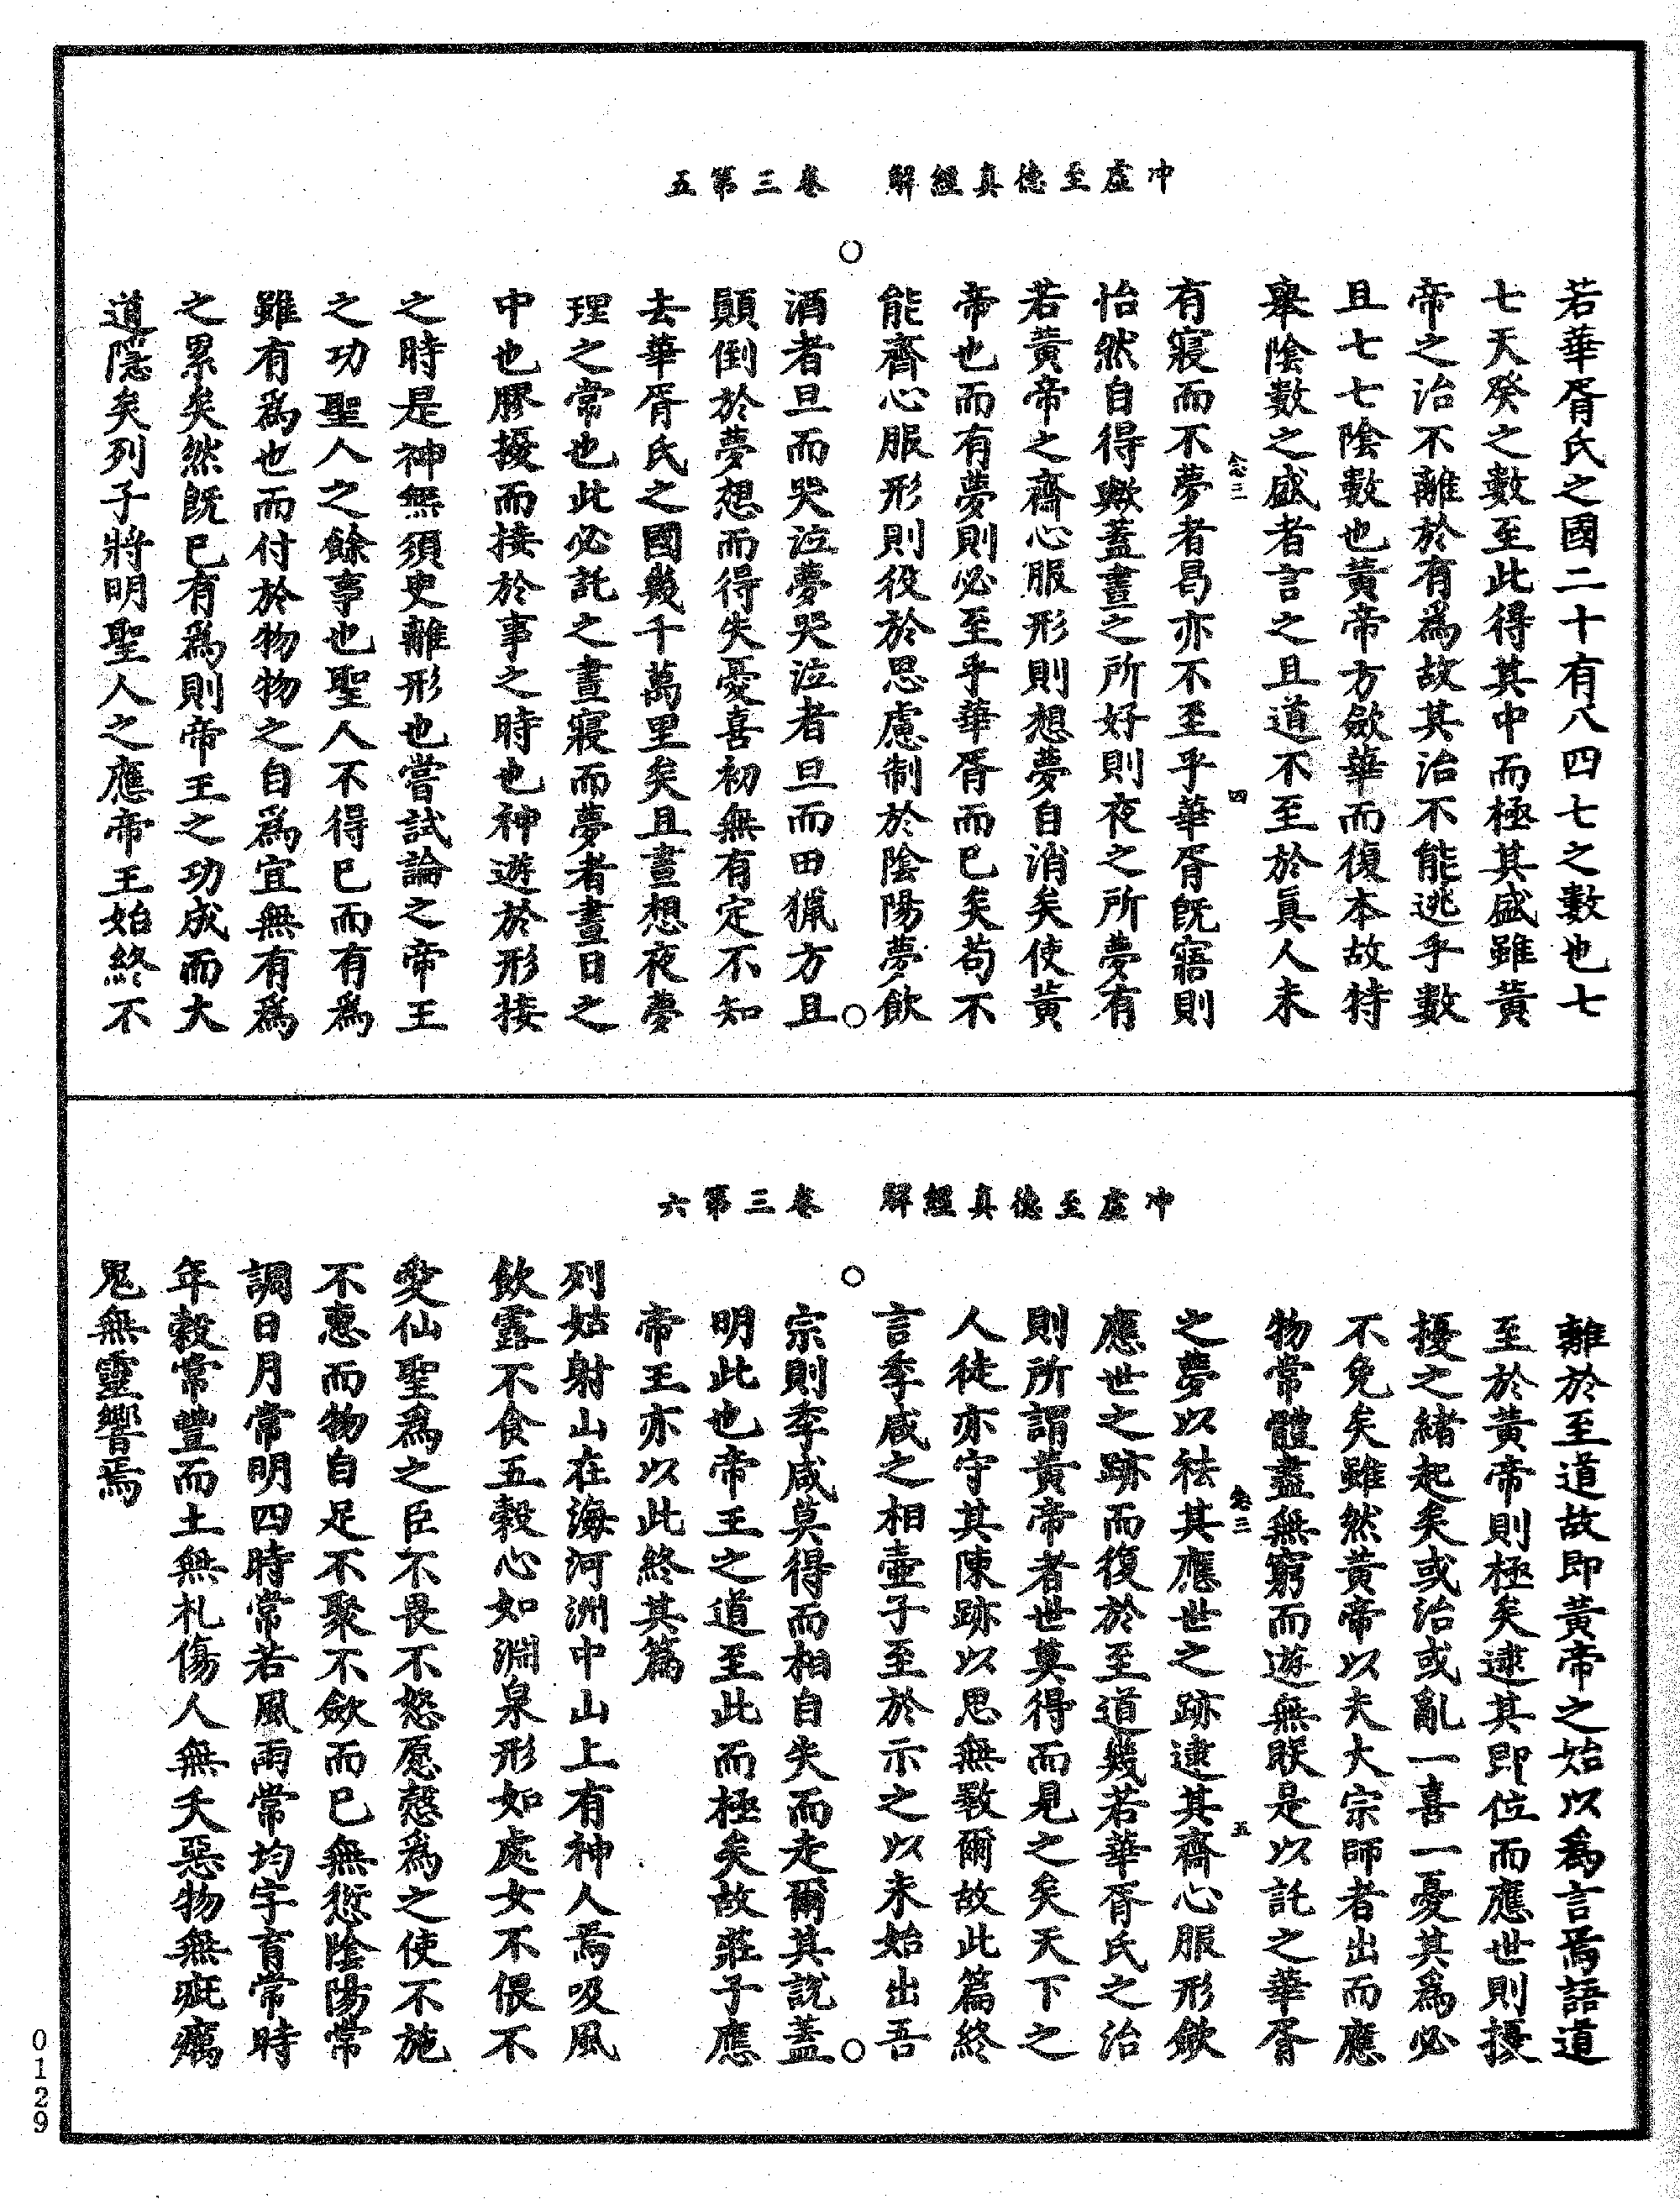 冲虛至德真經解　卷三第五
若華胥氏之國二十有八四七之數也七
七天癸之數至此得其中而極其盛雖黃
帝之治不離於有爲故其治不能逃乎數
且七七陰數也黃帝方斂華而復本故特
舉陰數之盛者言之且道不至於眞人未
念三　四
有寢而不夢者曷亦不至乎華胥旣寤則
怡然自得歟蓋晝之所好則夜之所夢有
若黃帝之齋心服形則想夢自消矣使黃
帝也而有夢則必至乎華胥而已矣苟不
能齋心服形則役於思慮制於陰陽夢飲
酒者旦而哭泣夢哭泣者旦而田獵方且
顛倒於夢想而得失憂喜初無有定不知
去華胥氏之國幾千萬里矣且晝想夜夢
理之常也此必託之晝寢而夢者晝日之
中也膠擾而接於事之時也神遊於形接
之時是神無須臾離形也嘗試論之帝王
之功聖人之餘事也聖人不得已而有爲
雖有爲也而付於物物之自爲宜無有爲
之累矣然旣已有爲則帝王之功成而大
道隱矣列子將明聖人之應帝王始終不
冲虛至德真經解　卷三第六
離於至道故即黃帝之始以爲言焉語道
至於黃帝則極矣逮其即位而應世則擾
擾之緒起矣或治或亂一喜一憂其爲必
不免矣雖然黃帝以夫大宗師者出而應
物常體盡無窮而遊無朕是以託之華胥
念三　五
之夢以祛其應世之跡逮其齋心服形斂
應世之跡而復於至道幾若華胥氏之治
則所謂黃帝者世莫得而見之矣天下之
人徒亦守其陳跡以思無斁爾故此篇終
言季咸之相壺子至於示之以未始出吾
宗則季咸莫得而相自失而走爾其說蓋
明此也帝王之道至此而極矣故莊子應
帝王亦以此終其篇
列姑射山在海河洲中山上有神人焉吸風
飲露不食五穀心如淵泉形如處女不偎不
愛仙聖爲之臣不畏不怒愿慤爲之使不施
不惠而物自足不聚不斂而已無愆陰陽常
調日月常明四時常若風雨常均字育常時
年穀常豐而土無札傷人無夭惡物無疵癘
鬼無靈響焉
0129